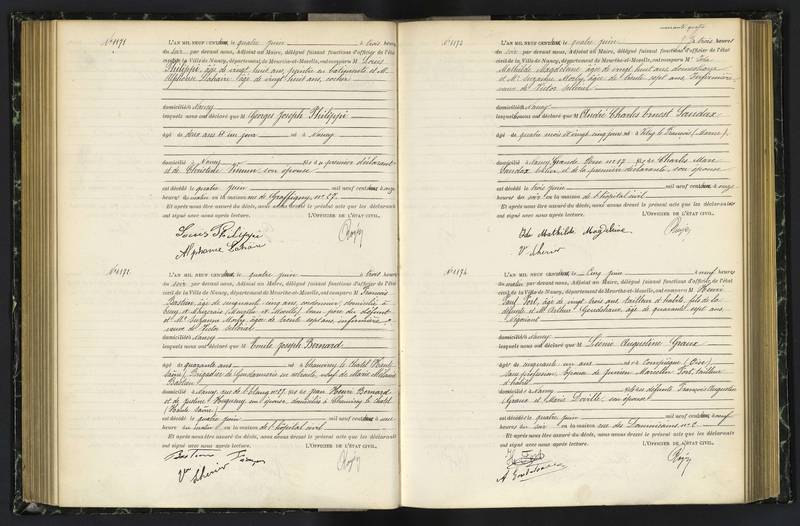 N° 1171
L'AN MIL NEUF CENT deux, le quatre juin à trois heures
du soir par devant nous, Adjoint au Maire, délégué faisant fonctions d'officier de l'état
civil de la Ville de Nancy, département de Meurthe-et-Moselle, ont comparu M. Louis
Philippi, âgé de vingt huit ans, peintre en bâtiments et M.
Alphonse Lahaire, âgé de vingt huit ans, cocher
domiciliés à Nancy
lesquels nous ont déclaré que M Georges Joseph Philippi
âgé de deux ans et un jour né à Nancy
domicilié à Nancy fils du premier déclarant
et de Christine son épouse
est décédé le quatre juin mil neuf cent deux à onze
heures du matin en la maison rue de Graffigny, n° 27.
Et après nous être assuré du décès, nous avons dressé le présent acte que les déclarants
ont signé avec nous après lecture. L'OFFICIER DE L'ÉTAT CIVIL.
Louis Philippi
Alphonse Lahaire
N° 1172
L'AN MIL NEUF CENT deux, le quatre juin à trois heures
du soir par devant nous, Adjoint au Maire, délégué faisant fonctions d'officier de l'état
civil de la Ville de Nancy, département de Meurthe-et-Moselle, ont comparu M François
Bastien, âgé de cinquante cinq ans, domicilié à
beau père du défunt
et Me Suzanne Morly, âgée de trente sept ans, infirmière,
veuve de Victor
domiciliés à Nancy
lesquels nous ont déclaré que M Emile Joseph Bernard
âgé de quarante ans né à Chauvirey le Chatel (Haute
Saône), Brigadier de Gendarmerie en retraite, veuf de Marie Mélanie
Bastien
domicilié à Nancy, rue de l'Etang n° 27, fils de Jean Henri Bernard
et de Justine son épouse, domiciliés à Chauvirey le Chatel
(Haute Saône)
est décédé le quatre juin mil neuf cent deux à une
heure du matin en la maison de l'hôpital civil
Et après nous être assuré du décès, nous avons dressé le présent acte que les déclarants
ont signé avec nous après lecture. L'OFFICIER DE L'ÉTAT CIVIL.
Bastien
N° 1173
L'AN MIL NEUF CENT deux, le quatre juin à trois heures
du soir par devant nous, Adjoint au Maire, délégué faisant fonctions d'officier de l'état
civil de la Ville de Nancy, département de Meurthe-et-Moselle, ont comparu Me Ida
Mathilde Magdeleine, âgée de vingt huit ans, domestique
et Me Suzanne Morly, âgée de trente sept ans, infirmière,
veuve de Victor
domiciliés à Nancy
lesquels nous ont déclaré que M André Charles Ernest Sandax
âgé de quatre mois et vingt cinq jours né à Vitry le François (Marne),
domicilié à Nancy, Grande Rue n° 17, fils de Charles Marc
Sandax et de la première déclarante, son épouse
est décédé le trois juin mil neuf cent deux à onze
heures du soir en la maison de l'hôpital civil
Et après nous être assuré du décès, nous avons dressé le présent acte que les déclarants
ont signé avec nous après lecture. L'OFFICIER DE L'ÉTAT CIVIL.
Ida Mathilde Magdeleine
N° 1174
L'AN MIL NEUF CENT deux, le cinq juin à neuf heures
du matin par devant nous, Adjoint au Maire, délégué faisant fonctions d'officier de l'état
civil de la Ville de Nancy, département de Meurthe-et-Moselle, ont comparu M Henri
Fort, âgé de vingt trois ans, tailleur d'habits, fils de la
défunte et M. Arthur Goudchaux, âgé de quarante sept ans,
négociant
domiciliés à Nancy
lesquels nous ont déclaré que M Léonie Augustine Graux
âgée de cinquante un ans née à Compiègne (Oise)
sans profession, épouse de Marcellin Fort, tailleur
d'habits
domicilié à Nancy fille des défunts François Augustin
Graux et Marie son épouse
est décédée le quatre juin mil neuf cent deux à neuf
heures du soir en la maison rue des Dominicains n° 2
Et après nous être assuré du décès, nous avons dressé le présent acte que les déclarants
ont signé avec nous après lecture. L'OFFICIER DE L'ÉTAT CIVIL.